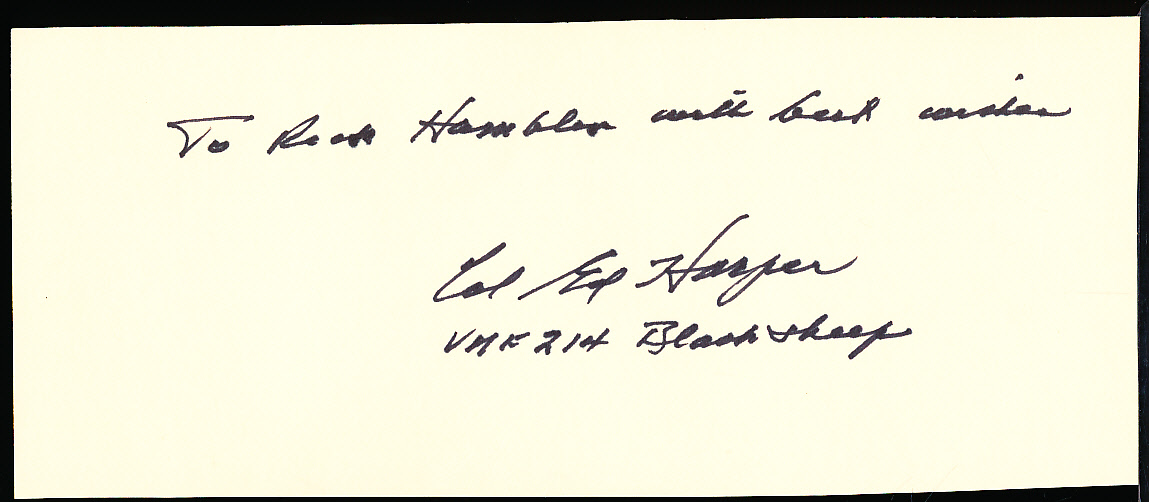 To Rick Hamblen with best wishes
Col Ed Harper
VMF 214 Blacksheep